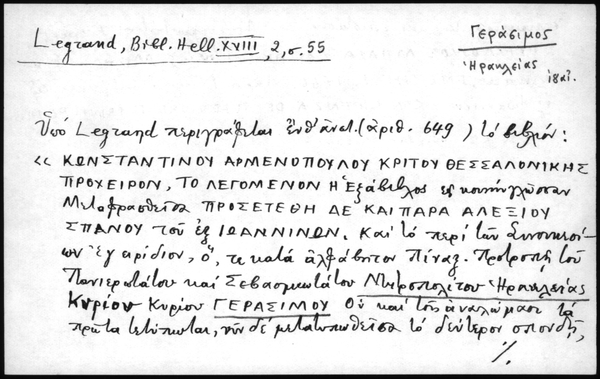 Legrand, Bibl. Hell. XVIII, 2, σ. 55
Γεράσιμος
Ἡρακλείας
ιη΄ αἰ.
Ὑπὸ Legrand περιγράφεται ἐνθ' ἀνωτ. (ἀριθ. 649) τὸ βιβλίον:
« ΚΩΝΣΤΑΝΤΙΝΟΥ ΑΡΜΕΝΟΠΟΥΛΟΥ ΚΡΙΤΟΥ ΘΕΣΣΑΛΟΝΙΚΗΣ
ΠΡΟΧΕΙΡΟΝ, ΤΟ ΛΕΓΟΜΕΝΟΝ Η Ἑξάβιβλος εἰς κοινὴν γλῶσσαν
Μεταφρασθεῖσα ΠΡΟΣΕΤΕΘΗ ΔΕ ΚΑΙ ΠΑΡΑ ΑΛΕΞΙΟΥ
ΣΠΑΝΟΥ τοῦ ἐξ ΙΩΑΝΝΙΝΩΝ. Καὶ τὸ περὶ τῶν Συνοικεσί-
ων Ἐγχειρίδιον, ὅ, τε κατὰ ἀλφάβητον Πίναξ. Προτροπῇ τοῦ
Πανιερωτάτου καὶ Σεβασμιωτάτου Μητροπολίτου Ἡρακλείας
Κυρίου Κυρίου ΓΕΡΑΣΙΜΟΥ Οὗ καὶ τοῖς ἀναλώμασι τὰ
πρῶτα τετύπωται, νῦν δὲ μετατυπωθεῖσα τὸ δεύτερον σπουδῇ,
./.